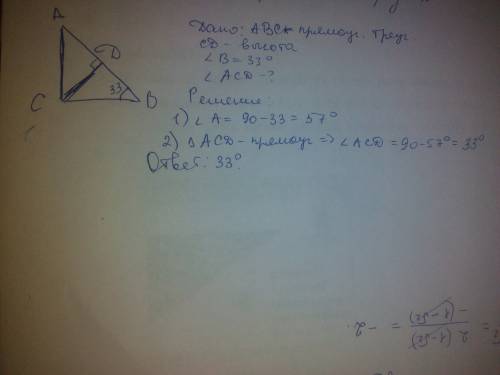 A
D
C
33
B
Дано: ABC прямоуг. треуг.
CD - высота
∠B = 33°
∠ACD - ?
Решение:
1) ∠A = 90-33 = 57°
2) △ACD - прямоуг => ∠ACD = 90-57° = 33°
Ответ: 33°.